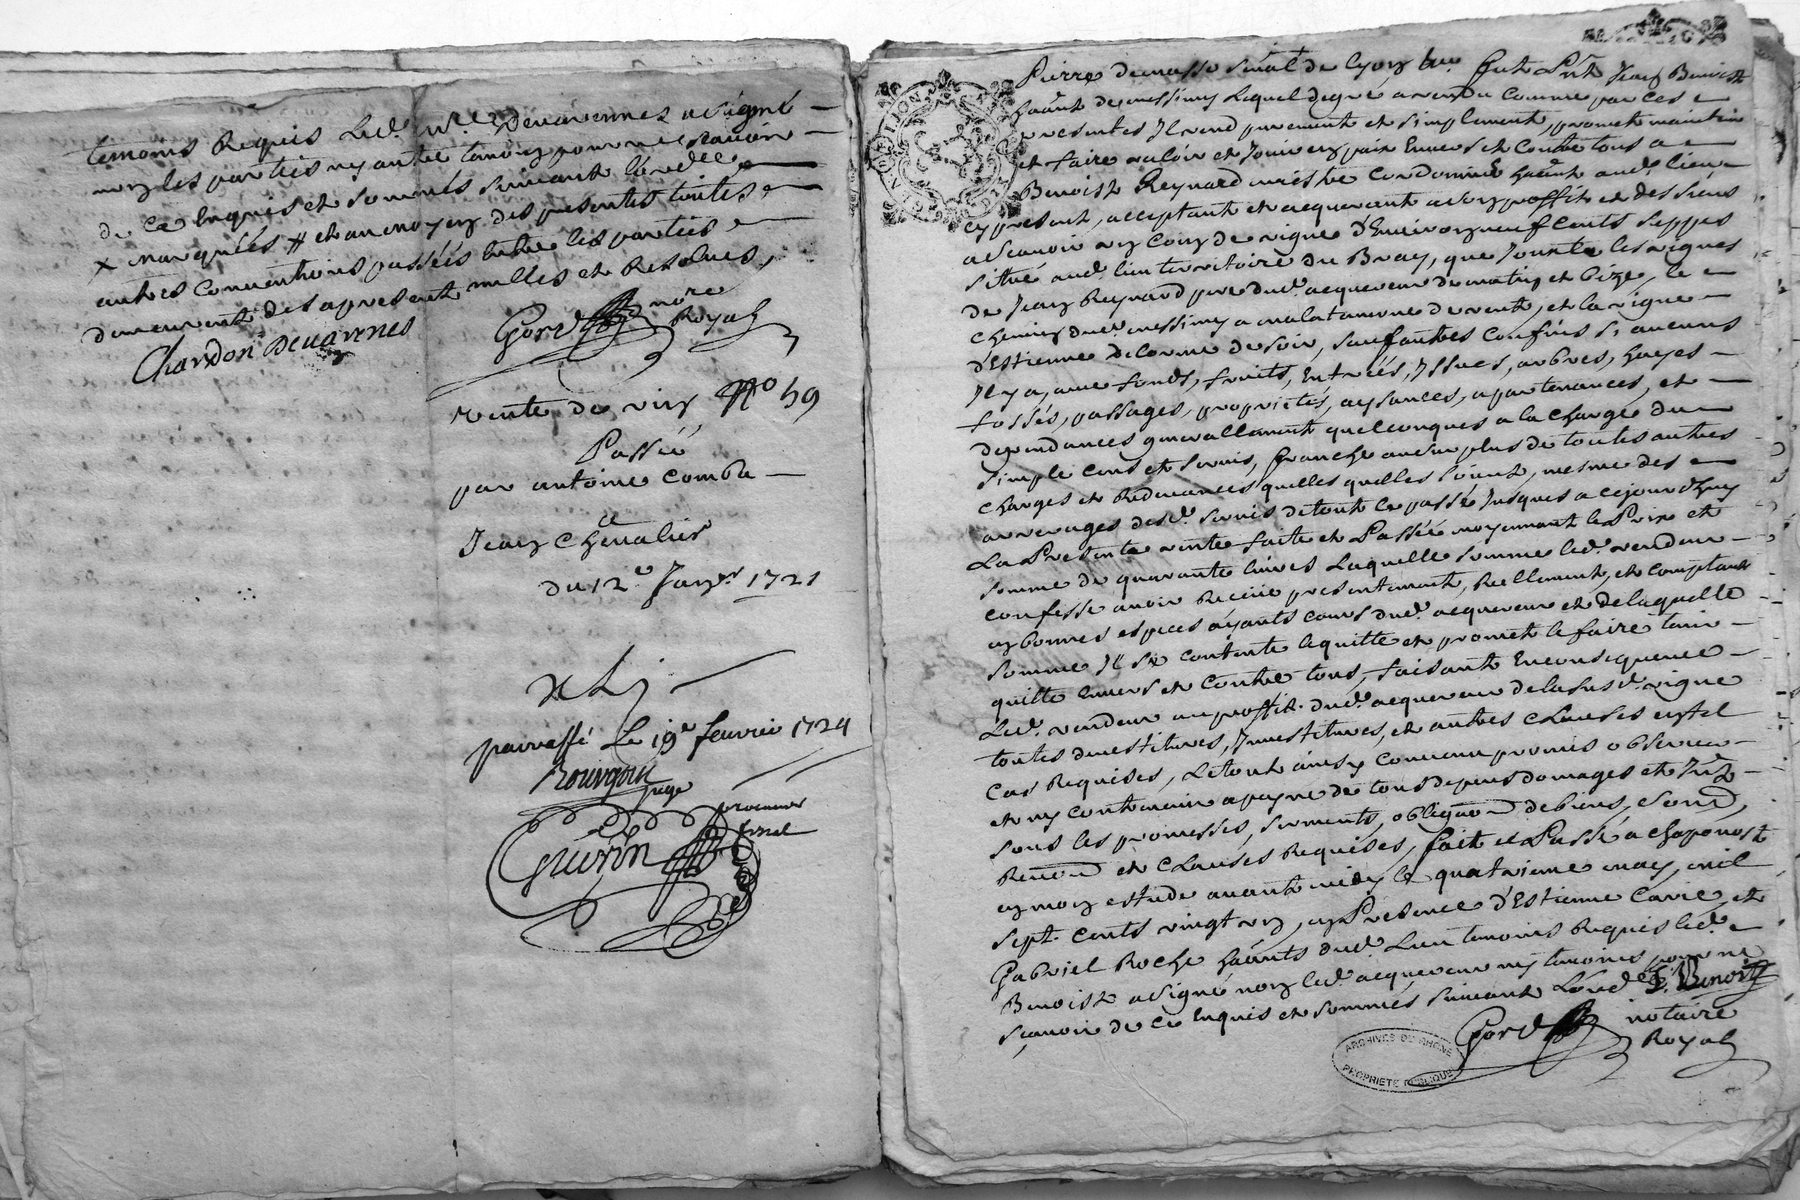 temoins Requis Led. Mre. Devarennes a signé
non les parties ny autre temoin pour ne scavoir
de ce Enquis et sommés suivant lord.ce
x marquées # et au moyen des presentes toutes
autres Conventions passées entre les parties
demeurent des apresent nulles et Resolues,
Chardon Devarenes
Gord nore Royal
vente de vin No 59
Passée
par antoine Comba
a
Jean Chevalier
du 12e. Janvr 1721
parraffé Le 19e fevrier 1724
Bourgoin
juge
Guerin procureur
fiscal
Pierre de masso senal de lyon &c. fut Pnt Jean Benoist
hãnt de messimy Lequel de gré a vendu comme par ces
presentes Il vend purement et simplement, promet maintenir
et faire valoir et Jouir en paix Envers et Contre tous a
Benoist Reynard hãnt aud. lieu
cy present, acceptant et acquerant a son proffit et des siens
a scavoir un coin de vigne d'Environ neuf cents seppes
situé aud. lieu territoire du Bray, que Jouxte les vignes
de Jean Reynard pere dud. acquereur de matin et bize, le
Chemin dud. messimy a malataverne de vent, et la vigne
d'Estienne Delorme de soir, sauf autres confins si aucuns
Il y a, avec fonds, fruits, Entrées, Issues, arbres, hayes
fossés, passages, proprietés, aysances, apartenances, et
dependances generallement quelconques a la charge du
simple cens et servis, franche au surplus de toutes autres
charges et Redevances quelles quelles soient, mesme des
arrerages desd. servis de tout le passé Jusques a cejourdhuy
La Presente vente faite et Passée moyennant le Prix et
somme de quarante livres Laquelle somme led. vendeur
confesse avoir Receüe presentement, Reellement, et comptant
en bonnes especes ayants cours dud. acquereur et de laquelle
somme Il se contente le quitte et promet le faire tenir
quitte Envers et Contre tous, faisant En consequence
Led. vendeur au proffit dud. acquereur de la susd. vigne
toutes devestitures, Investitures, et autres Clauses en tel
cas Requises, Le tout ainsy convenu promis observer
et ny contrevenir a payne de tous depens domages et Intz
sous les promesses, serments, obligaõn de biens, soumõn,
Renõn et Clauses Requises, fait et Passé a chaponost
en mon estude avant midy le quatrieme may mil
sept cents vingt un, en Presence d'Estienne Carie, et
Gabriel Roche hãnts dud. Lieu temoins Requis led.
Benoist a signé non led. acquereur ny temoins pour ne
scavoir de ce Enquis et sommés suivant lord.ce
J. Benoist
Gord notaire
Royal
ARCHIVES DU RHÔNE
PROPRIÉTÉ PUBLIQUE